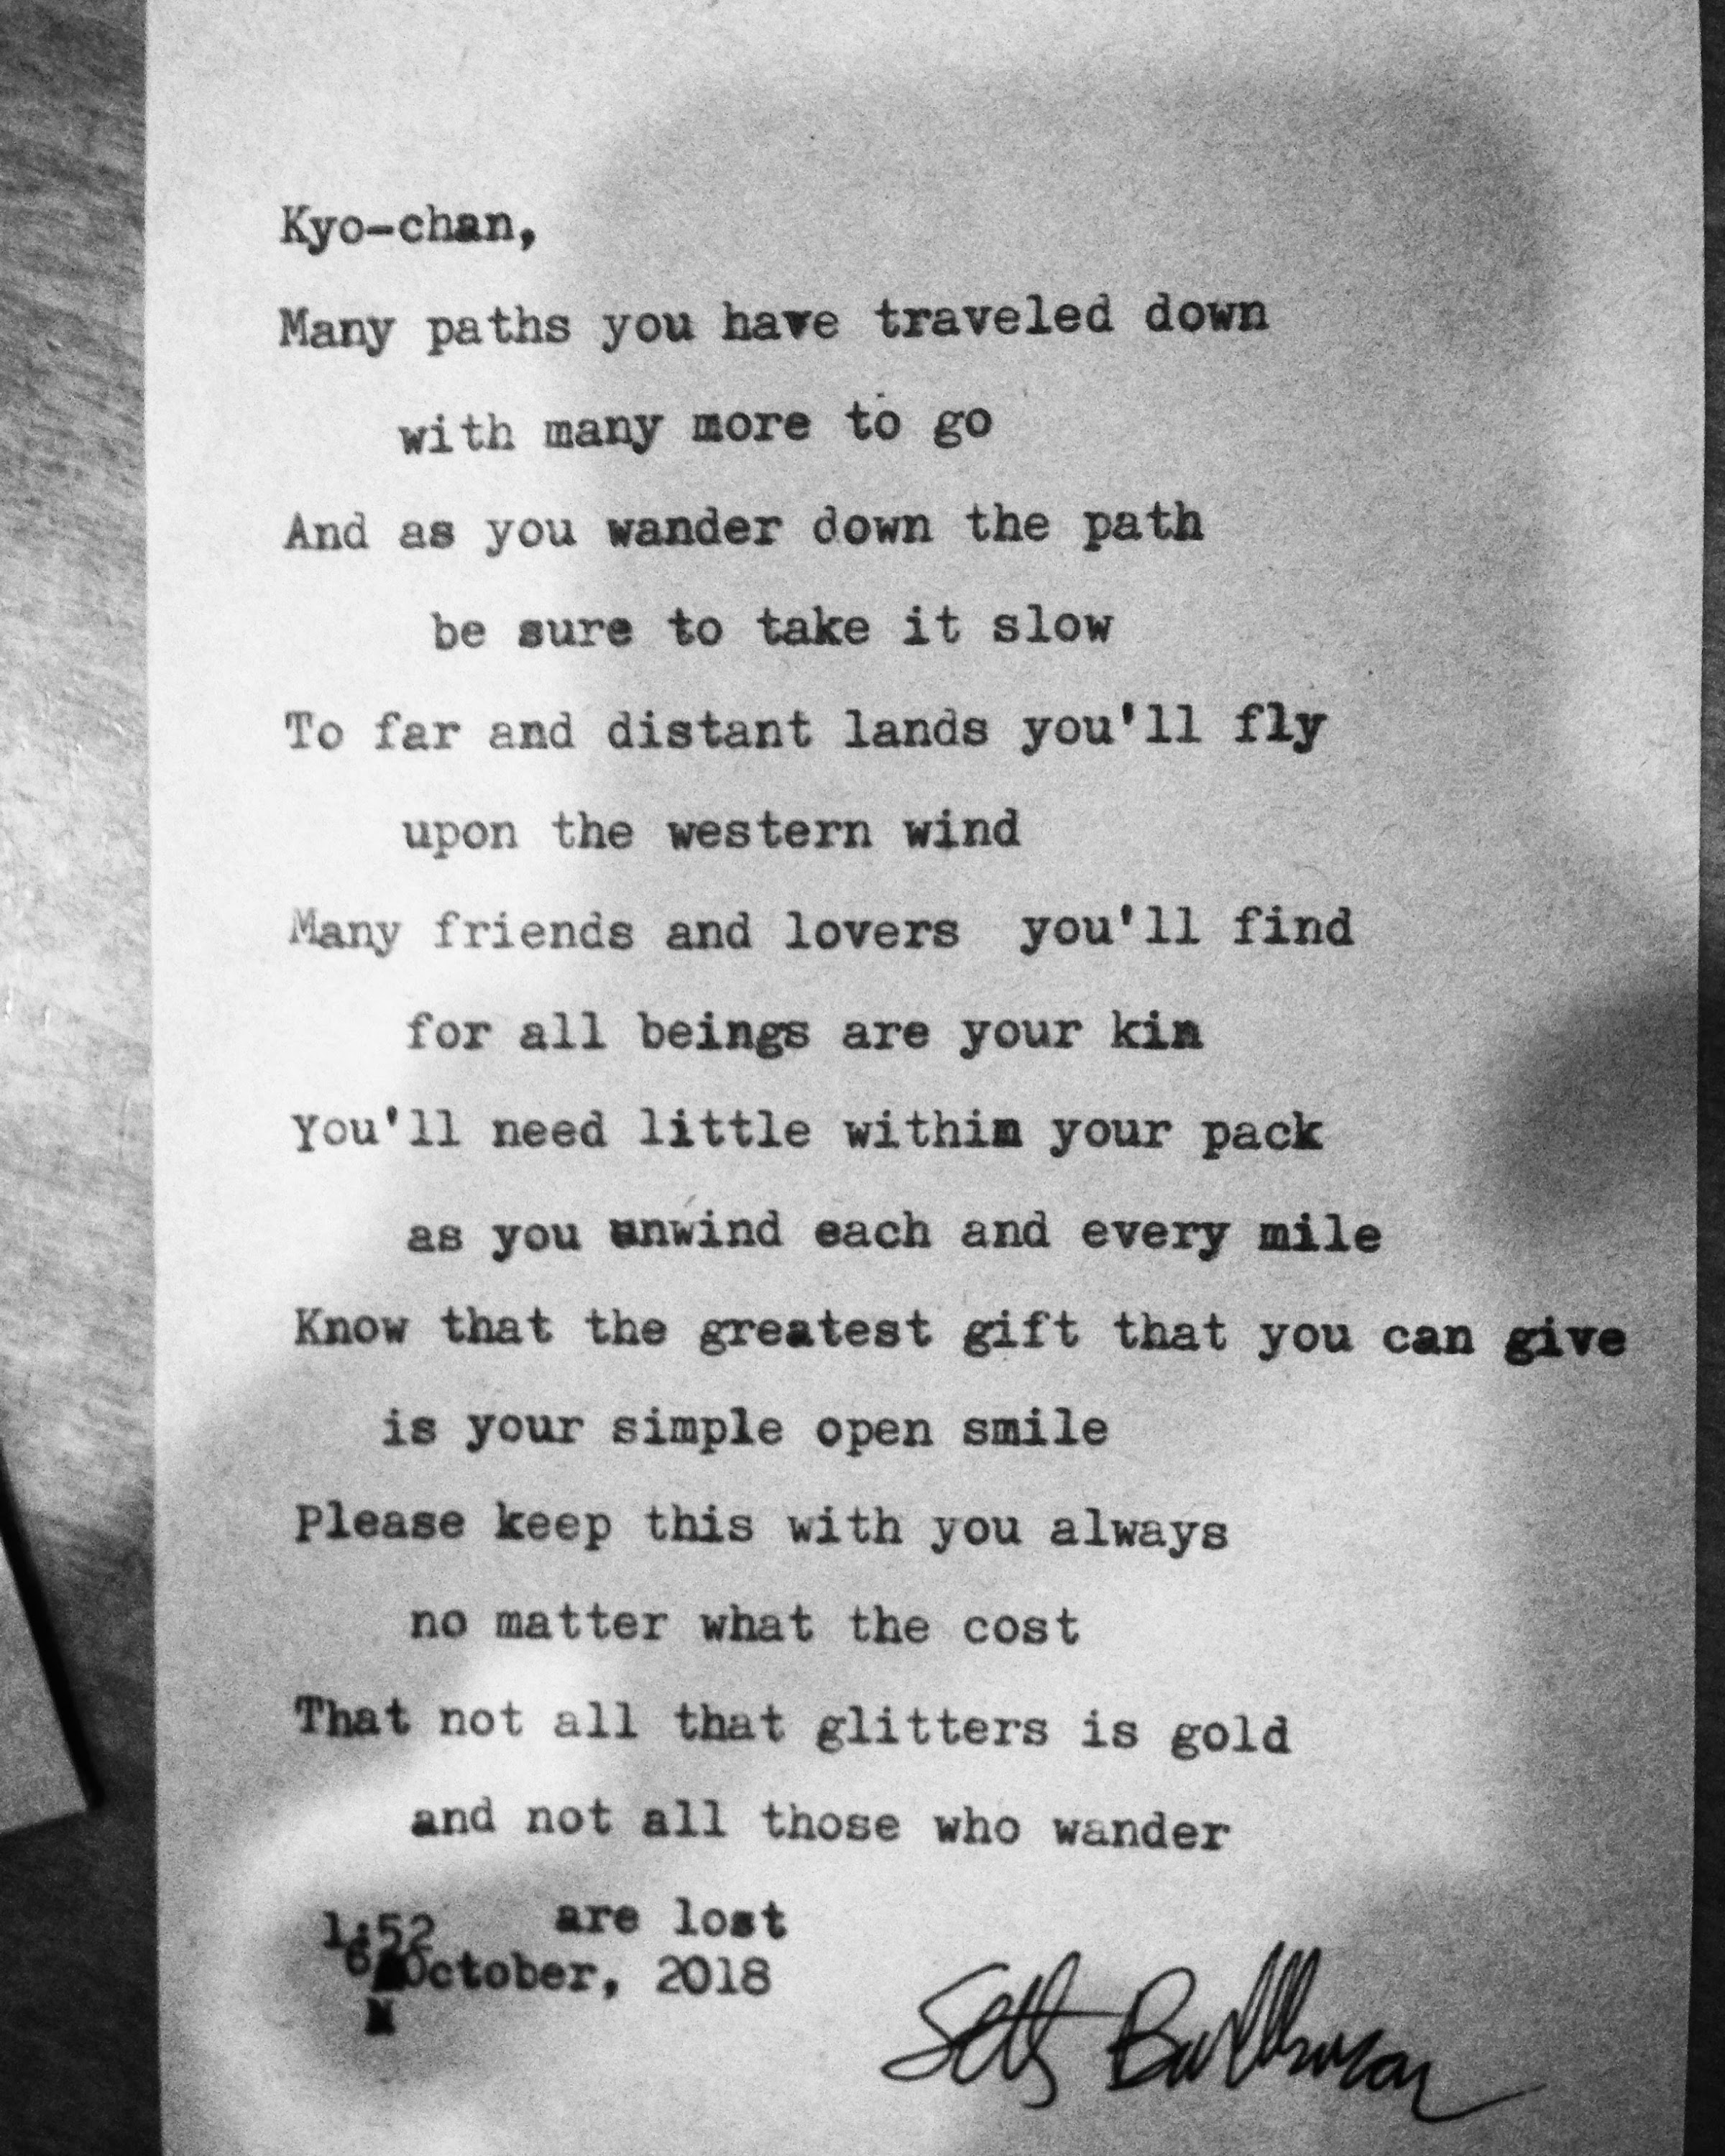 Kyo-chan,
Many paths you have traveled down
with many more to go
And as you wander down the path
be sure to take it slow
To far and distant lands you'll fly
upon the western wind
Many friends and lovers you'll find
for all beings are your kin
You'll need little within your pack
as you unwind each and every mile
Know that the greatest gift that you can give
is your simple open smile
Please keep this with you always
no matter what the cost
That not all that glitters is gold
and not all those who wander
are lost
1:52
6 October, 2018
Seth